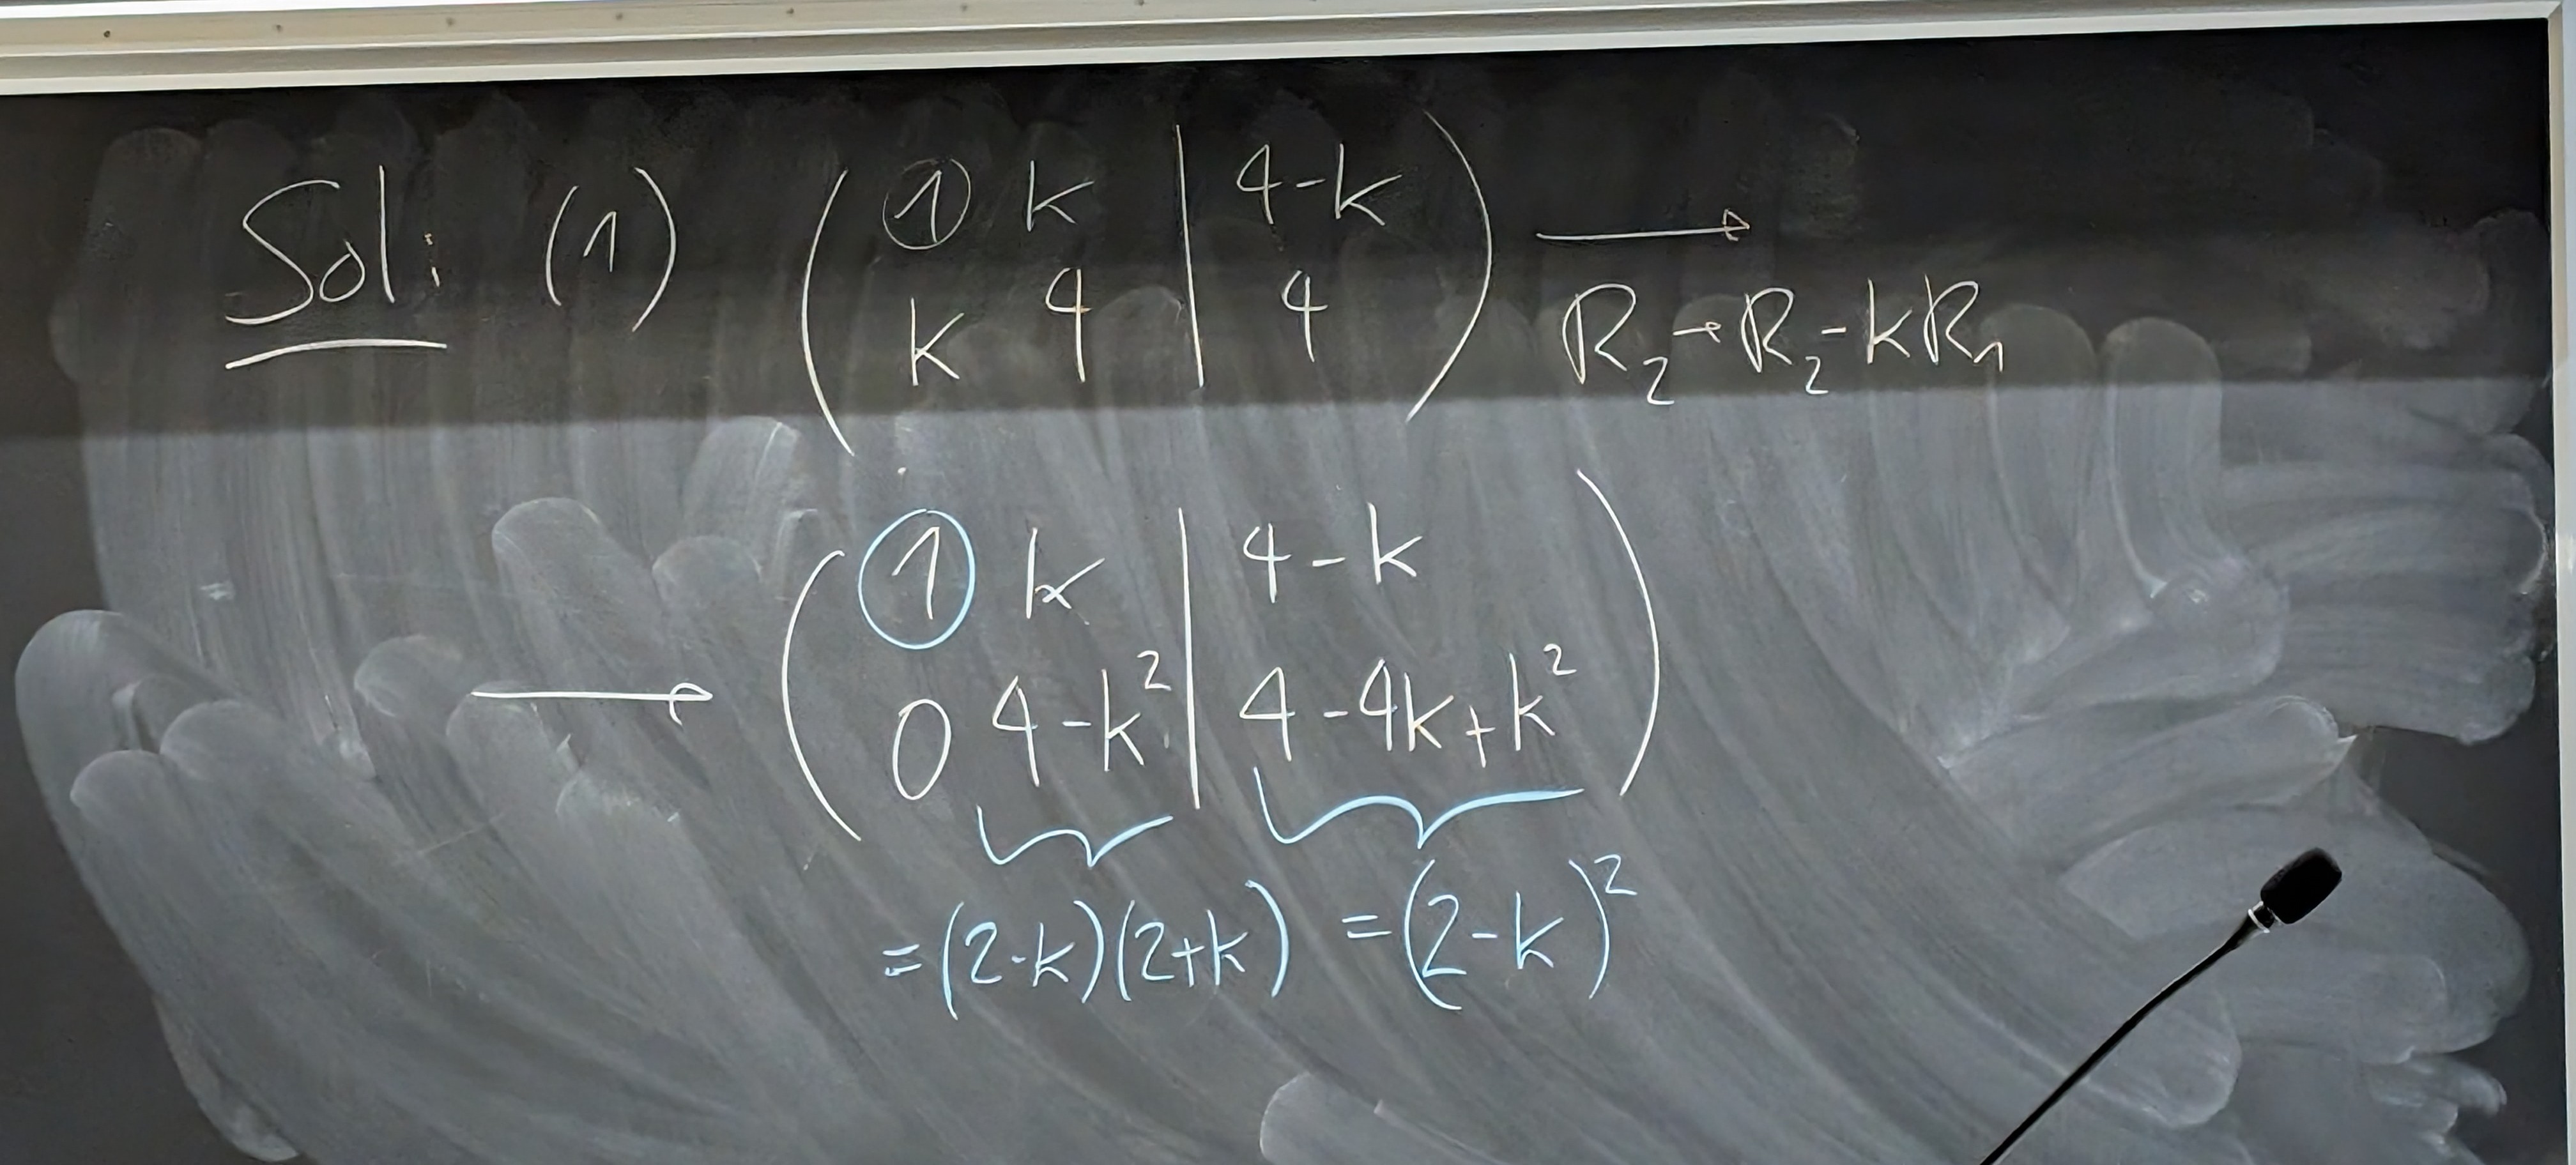 Sol: (1) ( 1 k | 4-k
k 4 | 4 ) → R₂→R₂-kR₁
→ ( 1 k | 4-k
0 4-k² | 4-4k+k² )
=(2-k)(2+k) =(2-k)²